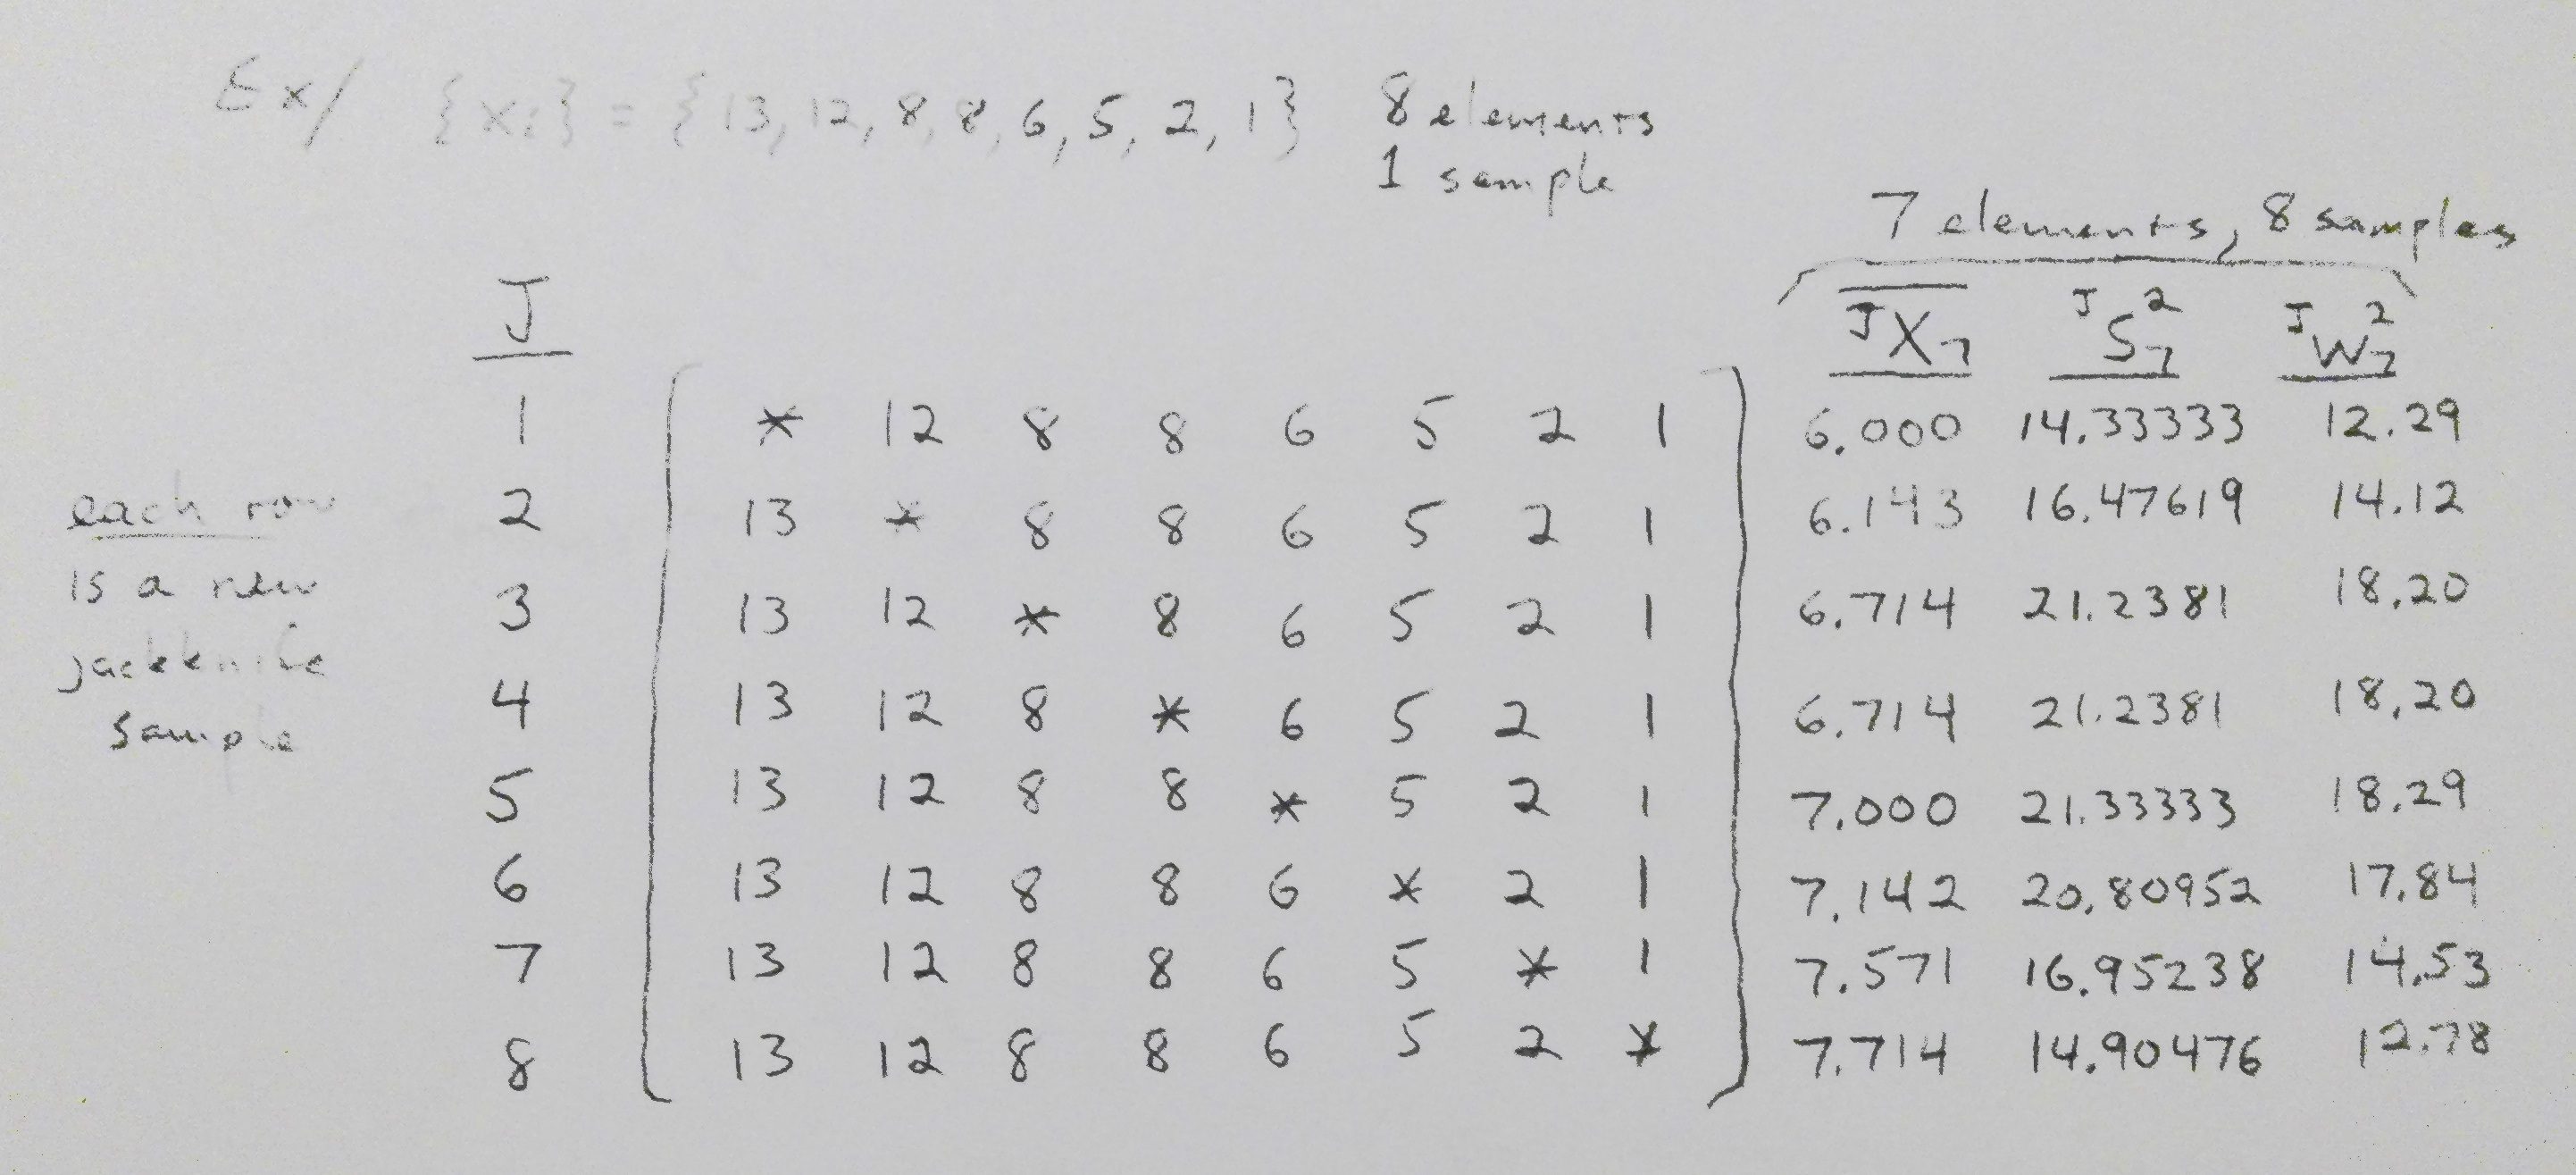 Ex/ {xi} = {13, 12, 8, 8, 6, 5, 2, 1} 8 elements
1 sample
7 elements, 8 samples
J JX̅7 JS7² JW7²
1 * 12 8 8 6 5 2 1 6.000 14.33333 12.29
2 13 * 8 8 6 5 2 1 6.143 16.47619 14.12
3 13 12 * 8 6 5 2 1 6.714 21.2381 18.20
4 13 12 8 * 6 5 2 1 6.714 21.2381 18.20
5 13 12 8 8 * 5 2 1 7.000 21.33333 18.29
6 13 12 8 8 6 * 2 1 7.142 20.80952 17.84
7 13 12 8 8 6 5 * 1 7.571 16.95238 14.53
8 13 12 8 8 6 5 2 * 7.714 14.90476 12.78
each row
is a new
jackknife
sample